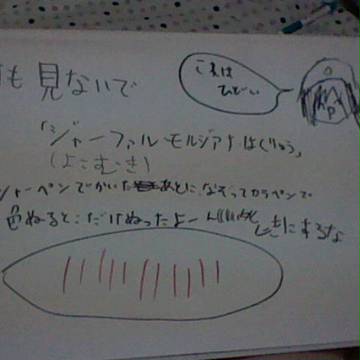 も 見ないで
これは
ひどい
「ジャーファル モルジアナ はくりゅう」
(よこむき)
シャーペンでかいたあとになぞってカラペンで
色ぬるとこだけぬったよー 気にするな